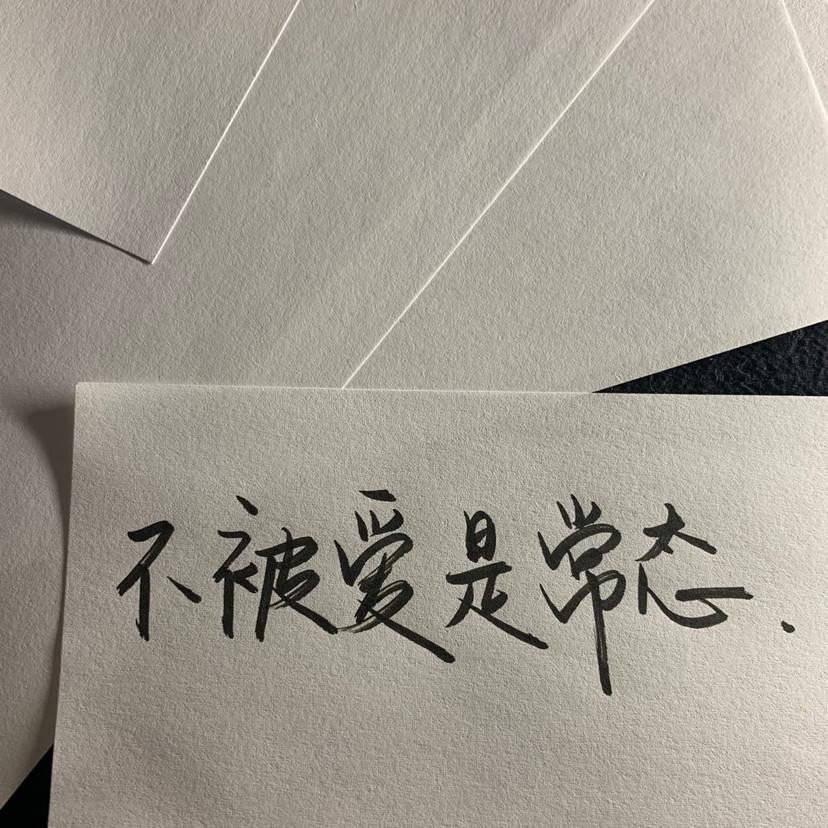 不被爱是常态.